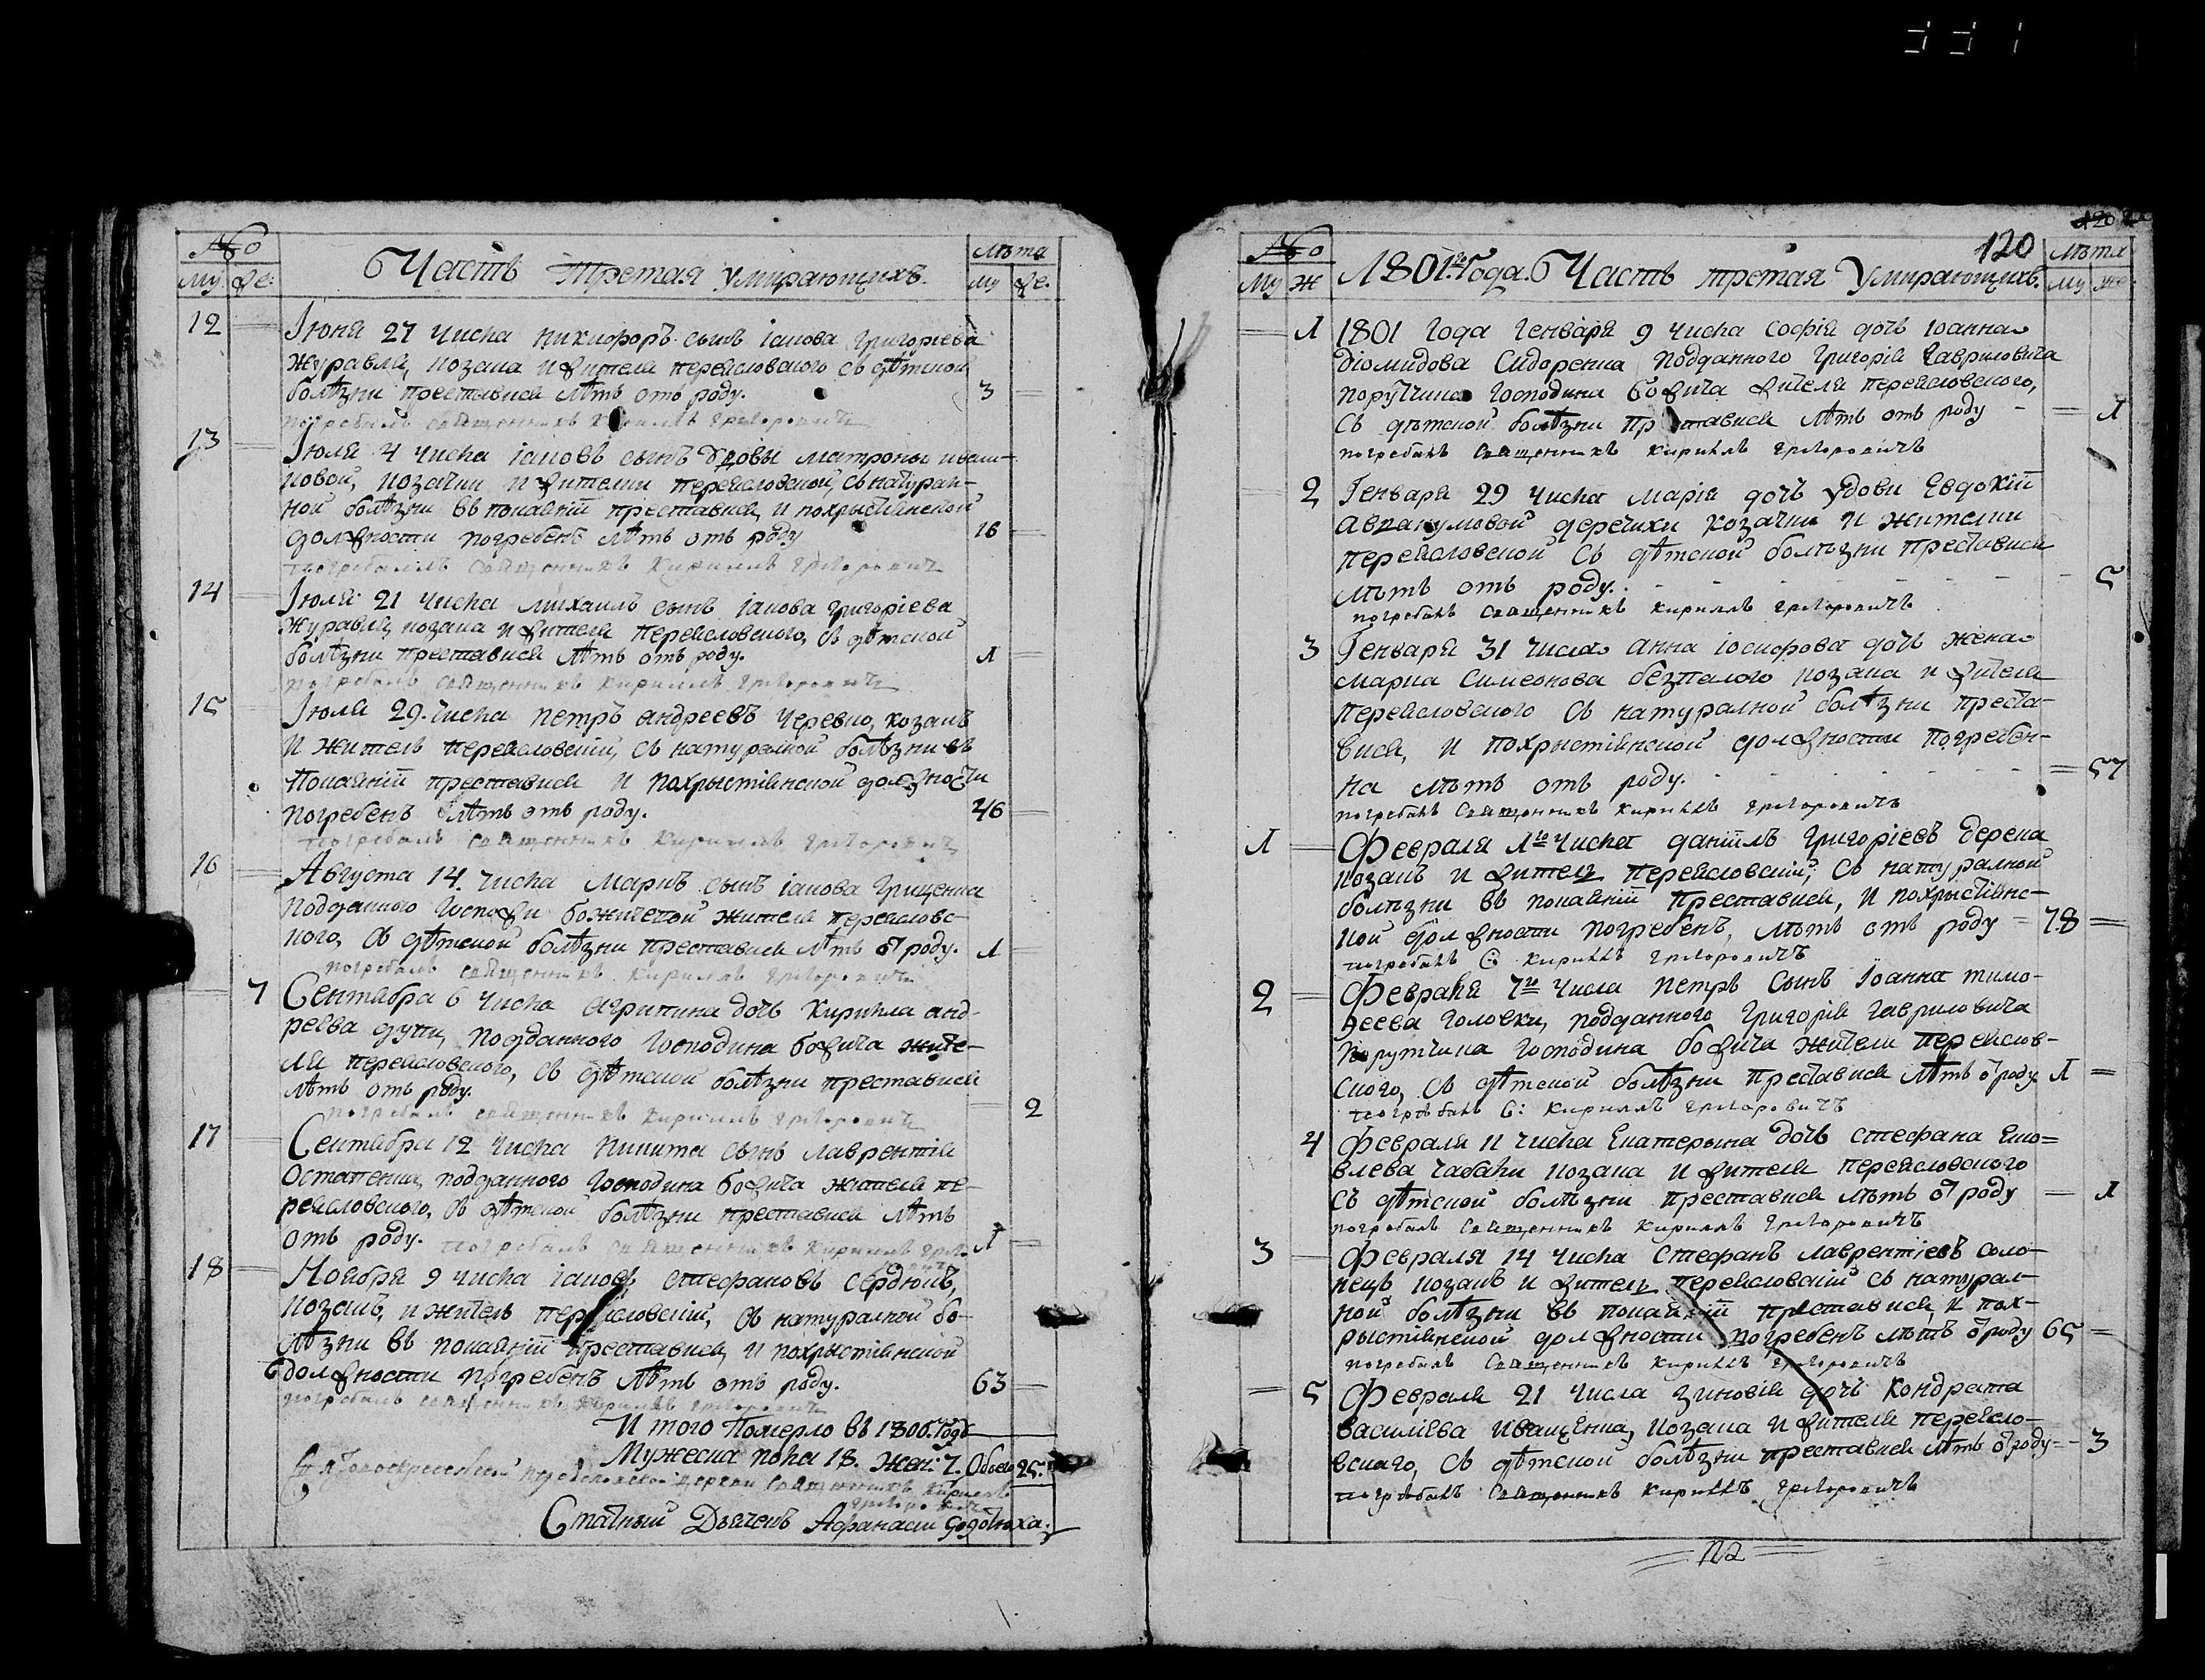 331
№
Часть Третая умирающихъ.
Лѣта
Му. Же.
Му Же.
12 Іюня 27 числа никифоръ сынъ іакова григоріева
журавля, козака и жителя переясловского съ дѣтской
болѣзни преставися лѣтъ отъ роду. 3
погребалъ священникъ Кириллъ Григоровичъ
13 Іюля 4 числа іаковъ сынъ вдовы матроны
ковой, козачки и жителки переясловской, съ натурал-
ной болѣзни въ покаяніи преставися, и похрыстіянской
должности погребенъ лѣтъ отъ роду 16
погребалъ священникъ Кириллъ Григоровичъ
14 Іюля 21 числа михаилъ сынъ іакова григоріева
журавля, козака и жителя переясловского, съ дѣтской
болѣзни преставися лѣтъ отъ роду. 1
погребалъ священникъ Кириллъ Григоровичъ
15 Іюля 29. числа петръ андреевъ черевко, козакъ
и житель переясловскій, съ натуралной болѣзни въ
покаяніи преставися и похрыстіянской должности
погребенъ лѣтъ отъ роду. 46
погребалъ священникъ Кириллъ Григоровичъ
16 Августа 14. числа маркъ сынъ іакова грищенка
подданного госпожи божичевой жителя переясловс-
кого, съ дѣтской болѣзни преставися лѣтъ отъ роду. 1
погребалъ священникъ Кириллъ Григоровичъ
7 Сентабра 6 числа агрипина дочь кирилла анд-
реева дупи, подданного господина божича жите-
ля переясловского, съ дѣтской болѣзни преставися
лѣтъ отъ роду. 2
погребалъ священникъ Кириллъ Григоровичъ
17 Сентабра 12 числа никита сынъ лаврентія
остапенка, подданного господина божича жителя пе-
реясловского, съ дѣтской болѣзни преставися лѣтъ
отъ роду. погребалъ священникъ Кириллъ 1
18 Ноября 9 числа іаковъ стефановъ сердюкъ,
козакъ, и житель переясловскій, съ натуралной бо-
лѣзни въ покаяніи преставися, и похрыстіянской
должности погребенъ лѣтъ отъ роду. 63
погребалъ священникъ Кириллъ Григоровичъ
И того Померло въ 1800. Годѣ
Мужеска пола 18. Жен: 7. Обоего 25.
церкви священникъ Кириллъ
Григоровичъ
Статный Дьячекъ Афанасій
120
№
1801го Года. Часть третая Умирающихъ.
Лѣта
Му Ж
Му Же
1 1801 года Генваря 9 числа софія дочь іоанна
діомидова сидоренка подданного григорія гавриловича
поручика господина божича жителя переясловского,
съ дѣтской болѣзни преставися лѣтъ отъ роду 1
погребалъ священникъ Кириллъ Григоровичъ
2 Генваря 29 числа марія дочь удови Евдокіи
авакумовой деречихи козачки и жителки
переясловской съ дѣтской болѣзни преставися
лѣтъ отъ роду. 5
погребалъ священникъ Кириллъ Григоровичъ
3 Генваря 31 числа анна іосифова дочь жена
марка симеонова безпалого козака и жителя
переясловского съ натуралной болѣзни преста-
вися, и похрыстіянской должности погребен-
на лѣтъ отъ роду. 57
погребалъ священникъ Кириллъ Григоровичъ
1 Февраля 1го числа даніилъ григоріевъ дерека
козакъ и житель переясловскій, съ натуралной
болѣзни въ покаяніи преставися, и похрыстіянс-
кой должности погребенъ, лѣтъ отъ роду 78
погребалъ С: Кириллъ Григоровичъ
2 Февраля 7го числа петръ сынъ іоанна тимо-
ѳеева головки, подданного григорія гавриловича
порутчика господина божича жителя переяслов-
ского, съ дѣтской болѣзни преставися лѣтъ отъ роду 1
погрѣбалъ С: Кириллъ Григоровичъ
4 Февраля 11 числа Екатерына дочь стефана яко=
влева чабана козака и жителя переясловского
съ дѣтской болѣзни преставися лѣтъ отъ роду 1
погребалъ священникъ Кириллъ Григоровичъ
3 Февраля 14 числа стефанъ лаврентіевъ соло-
нецъ козакъ и житель переясловскій съ натурал-
ной болѣзни въ покаяніи преставися, и пох-
рыстіянской должности погребенъ лѣтъ отъ роду 65
погребалъ священникъ Кириллъ Григоровичъ
5 Февраля 21 числа зиновія дочь кондрата
василіева иващенка, козака и жителя переясло-
вского, съ дѣтской болѣзни преставися лѣтъ отъ роду 3
погрѣбалъ священникъ Кириллъ Григоровичъ